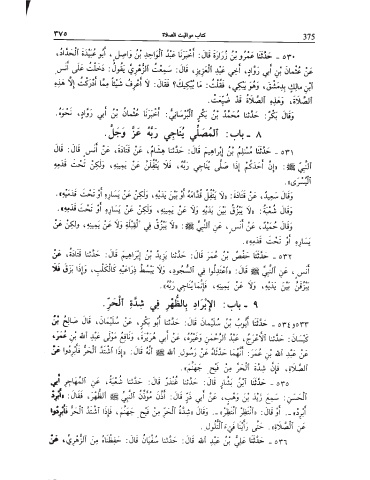 ٣٧٥ كتاب مواقيت الصلاة 375
٥٣٠ - حَدَّثَنَا عَمْرُو بْنُ زُرَارَةَ قَالَ: أَخْبَرَنَا عَبْدُ الْوَاحِدِ بْنُ وَاصِلٍ، أَبُو عُبَيْدَةَ الْحَدَّادُ،
عَنْ عُثْمَانَ بْنِ أَبِي رَوَّادٍ، أَخِي عَبْدِ الْعَزِيزِ، قَالَ: سَمِعْتُ الزُّهْرِيَّ يَقُولُ: دَخَلْتُ عَلَى أَنَسِ
ابْنِ مَالِكٍ بِدِمَشْقَ، وَهُوَ يَبْكِي، فَقُلْتُ: مَا يُبْكِيكَ؟ فَقَالَ: لَا أَعْرِفُ شَيْئًا مِمَّا أَدْرَكْتُ إِلَّا هَذِهِ
الصَّلَاةَ، وَهَذِهِ الصَّلَاةُ قَدْ ضُيِّعَتْ.
وَقَالَ بَكْرٌ: حَدَّثَنَا مُحَمَّدُ بْنُ بَكْرٍ الْبُرْسَانِيُّ: أَخْبَرَنَا عُثْمَانُ بْنُ أَبِي رَوَّادٍ، نَحْوَهُ.
٨ - باب: الْمُصَلِّي يُنَاجِي رَبَّهُ عَزَّ وَجَلَّ.
٥٣١ - حَدَّثَنَا مُسْلِمُ بْنُ إِبْرَاهِيمَ قَالَ: حَدَّثَنَا هِشَامٌ، عَنْ قَتَادَةَ، عَنْ أَنَسٍ قَالَ: قَالَ
النَّبِيُّ ﷺ: «إِنَّ أَحَدَكُمْ إِذَا صَلَّى يُنَاجِي رَبَّهُ، فَلَا يَتْفِلَنَّ عَنْ يَمِينِهِ، وَلَكِنْ تَحْتَ قَدَمِهِ
الْيُسْرَى».
وَقَالَ سَعِيدٌ، عَنْ قَتَادَةَ: «لَا يَتْفِلُ قُدَّامَهُ أَوْ بَيْنَ يَدَيْهِ، وَلَكِنْ عَنْ يَسَارِهِ أَوْ تَحْتَ قَدَمَيْهِ».
وَقَالَ شُعْبَةُ: «لَا يَبْزُقُ بَيْنَ يَدَيْهِ وَلَا عَنْ يَمِينِهِ، وَلَكِنْ عَنْ يَسَارِهِ أَوْ تَحْتَ قَدَمِهِ».
وَقَالَ حُمَيْدٌ، عَنْ أَنَسٍ، عَنِ النَّبِيِّ ﷺ: «لَا يَبْزُقْ فِي الْقِبْلَةِ وَلَا عَنْ يَمِينِهِ، وَلَكِنْ عَنْ
يَسَارِهِ أَوْ تَحْتَ قَدَمِهِ».
٥٣٢ - حَدَّثَنَا حَفْصُ بْنُ عُمَرَ قَالَ: حَدَّثَنَا يَزِيدُ بْنُ إِبْرَاهِيمَ قَالَ: حَدَّثَنَا قَتَادَةُ، عَنْ
أَنَسٍ، عَنِ النَّبِيِّ ﷺ قَالَ: «اعْتَدِلُوا فِي السُّجُودِ، وَلَا يَبْسُطْ ذِرَاعَيْهِ كَالْكَلْبِ، وَإِذَا بَزَقَ فَلَا
يَبْزُقَنَّ بَيْنَ يَدَيْهِ، وَلَا عَنْ يَمِينِهِ، فَإِنَّمَا يُنَاجِي رَبَّهُ».
٩ - باب: الْإِبْرَادِ بِالظُّهْرِ فِي شِدَّةِ الْحَرِّ.
٥٣٣، ٥٣٤ - حَدَّثَنَا أَيُّوبُ بْنُ سُلَيْمَانَ قَالَ: حَدَّثَنَا أَبُو بَكْرٍ، عَنْ سُلَيْمَانَ، قَالَ صَالِحُ بْنُ
كَيْسَانَ: حَدَّثَنَا الْأَعْرَجُ، عَبْدُ الرَّحْمَنِ وَغَيْرُهُ، عَنْ أَبِي هُرَيْرَةَ، وَنَافِعٌ مَوْلَى عَبْدِ اللهِ بْنِ عُمَرَ،
عَنْ عَبْدِ اللهِ بْنِ عُمَرَ: أَنَّهُمَا حَدَّثَاهُ عَنْ رَسُولِ اللهِ ﷺ أَنَّهُ قَالَ: «إِذَا اشْتَدَّ الْحَرُّ فَأَبْرِدُوا عَنِ
الصَّلَاةِ، فَإِنَّ شِدَّةَ الْحَرِّ مِنْ فَيْحِ جَهَنَّمَ».
٥٣٥ - حَدَّثَنَا ابْنُ بَشَّارٍ قَالَ: حَدَّثَنَا غُنْدَرٌ قَالَ: حَدَّثَنَا شُعْبَةُ، عَنِ الْمُهَاجِرِ أَبِي
الْحَسَنِ: سَمِعَ زَيْدَ بْنَ وَهْبٍ، عَنْ أَبِي ذَرٍّ قَالَ: أَذَّنَ مُؤَذِّنُ النَّبِيِّ ﷺ الظُّهْرَ، فَقَالَ: «أَبْرِدْ
أَبْرِدْ». أَوْ قَالَ: «انْتَظِرْ انْتَظِرْ». وَقَالَ: «شِدَّةُ الْحَرِّ مِنْ فَيْحِ جَهَنَّمَ، فَإِذَا اشْتَدَّ الْحَرُّ فَأَبْرِدُوا
عَنِ الصَّلَاةِ». حَتَّى رَأَيْنَا فَيْءَ التُّلُولِ.
٥٣٦ - حَدَّثَنَا عَلِيُّ بْنُ عَبْدِ اللهِ قَالَ: حَدَّثَنَا سُفْيَانُ قَالَ: حَفِظْنَاهُ مِنَ الزُّهْرِيِّ، عَنْ